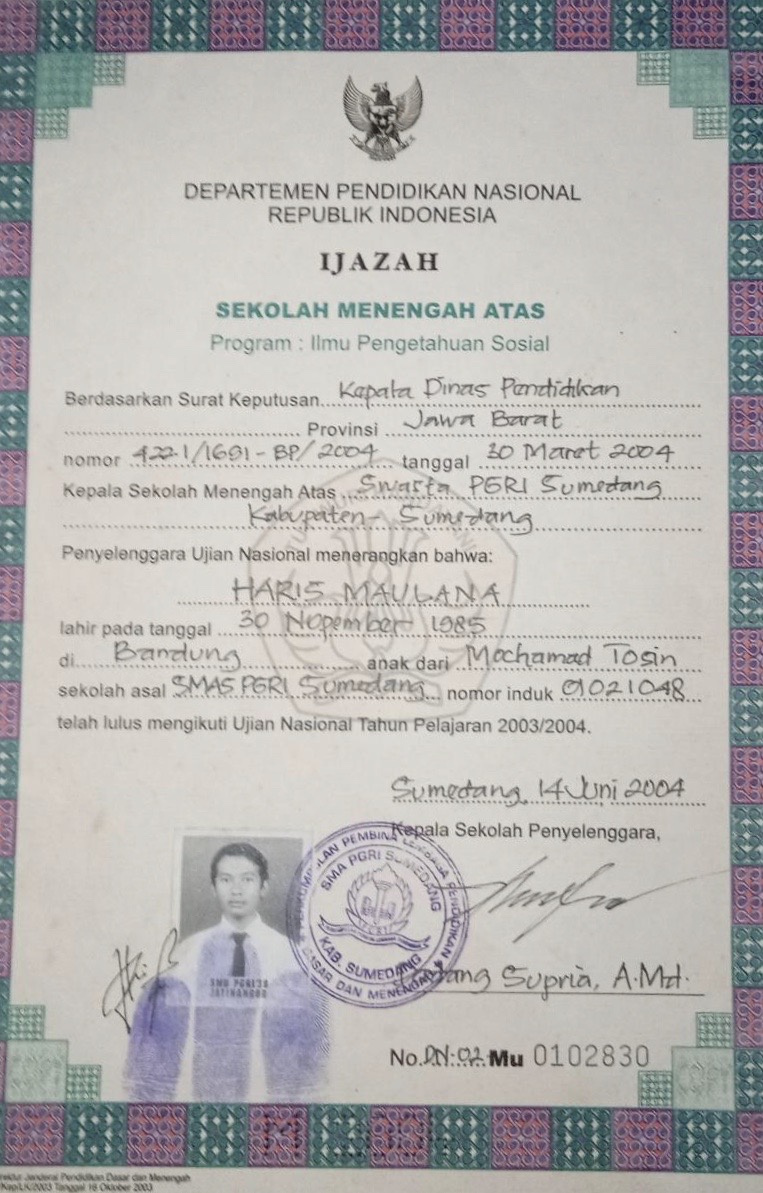 DEPARTEMEN PENDIDIKAN NASIONAL
REPUBLIK INDONESIA
IJAZAH
SEKOLAH MENENGAH ATAS
Program : Ilmu Pengetahuan Sosial
Berdasarkan Surat Keputusan Kepala Dinas Pendidikan
Provinsi Jawa Barat
nomor 422.1/1691-BP/2004 tanggal 30 Maret 2004
Kepala Sekolah Menengah Atas Swasta PGRI Sumedang
Kabupaten Sumedang
Penyelenggara Ujian Nasional menerangkan bahwa:
HARIS MAULANA
lahir pada tanggal 30 Nopember 1985
di Bandung anak dari Mochamad Tosin
sekolah asal SMAS PGRI Sumedang nomor induk 01021048
telah lulus mengikuti Ujian Nasional Tahun Pelajaran 2003/2004.
Sumedang, 14 Juni 2004
Kepala Sekolah Penyelenggara,
PERKUMPULAN PEMBINA LEMBAGA PENDIDIKAN DASAR DAN MENENGAH
SMA PGRI SUMEDANG
KAB. SUMEDANG
Supria, A.Md.
No. DN: 02 Mu 0102830
COPY
COPY
Direktur Jenderal Pendidikan Dasar dan Menengah
Tanggal 16 Oktober 2003